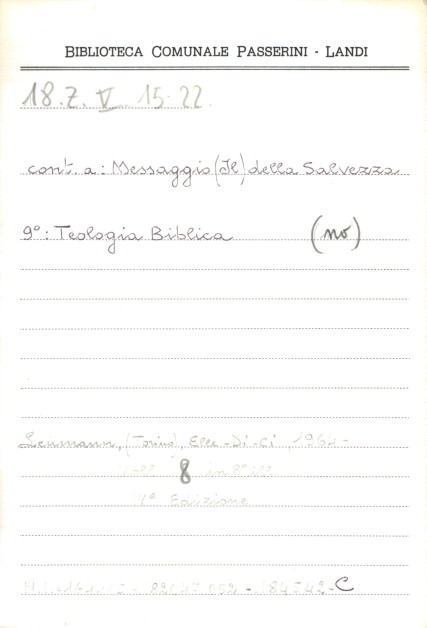 BIBLIOTECA COMUNALE PASSERINI - LANDI
18.Z. V 15-22
cont. a: Messaggio (Il) della Salvezza
9°: Teologia Biblica (no)
Leumann, (Torino), Elle-Di-Ci, 1964-
8 in 8° ill
Edizione
C